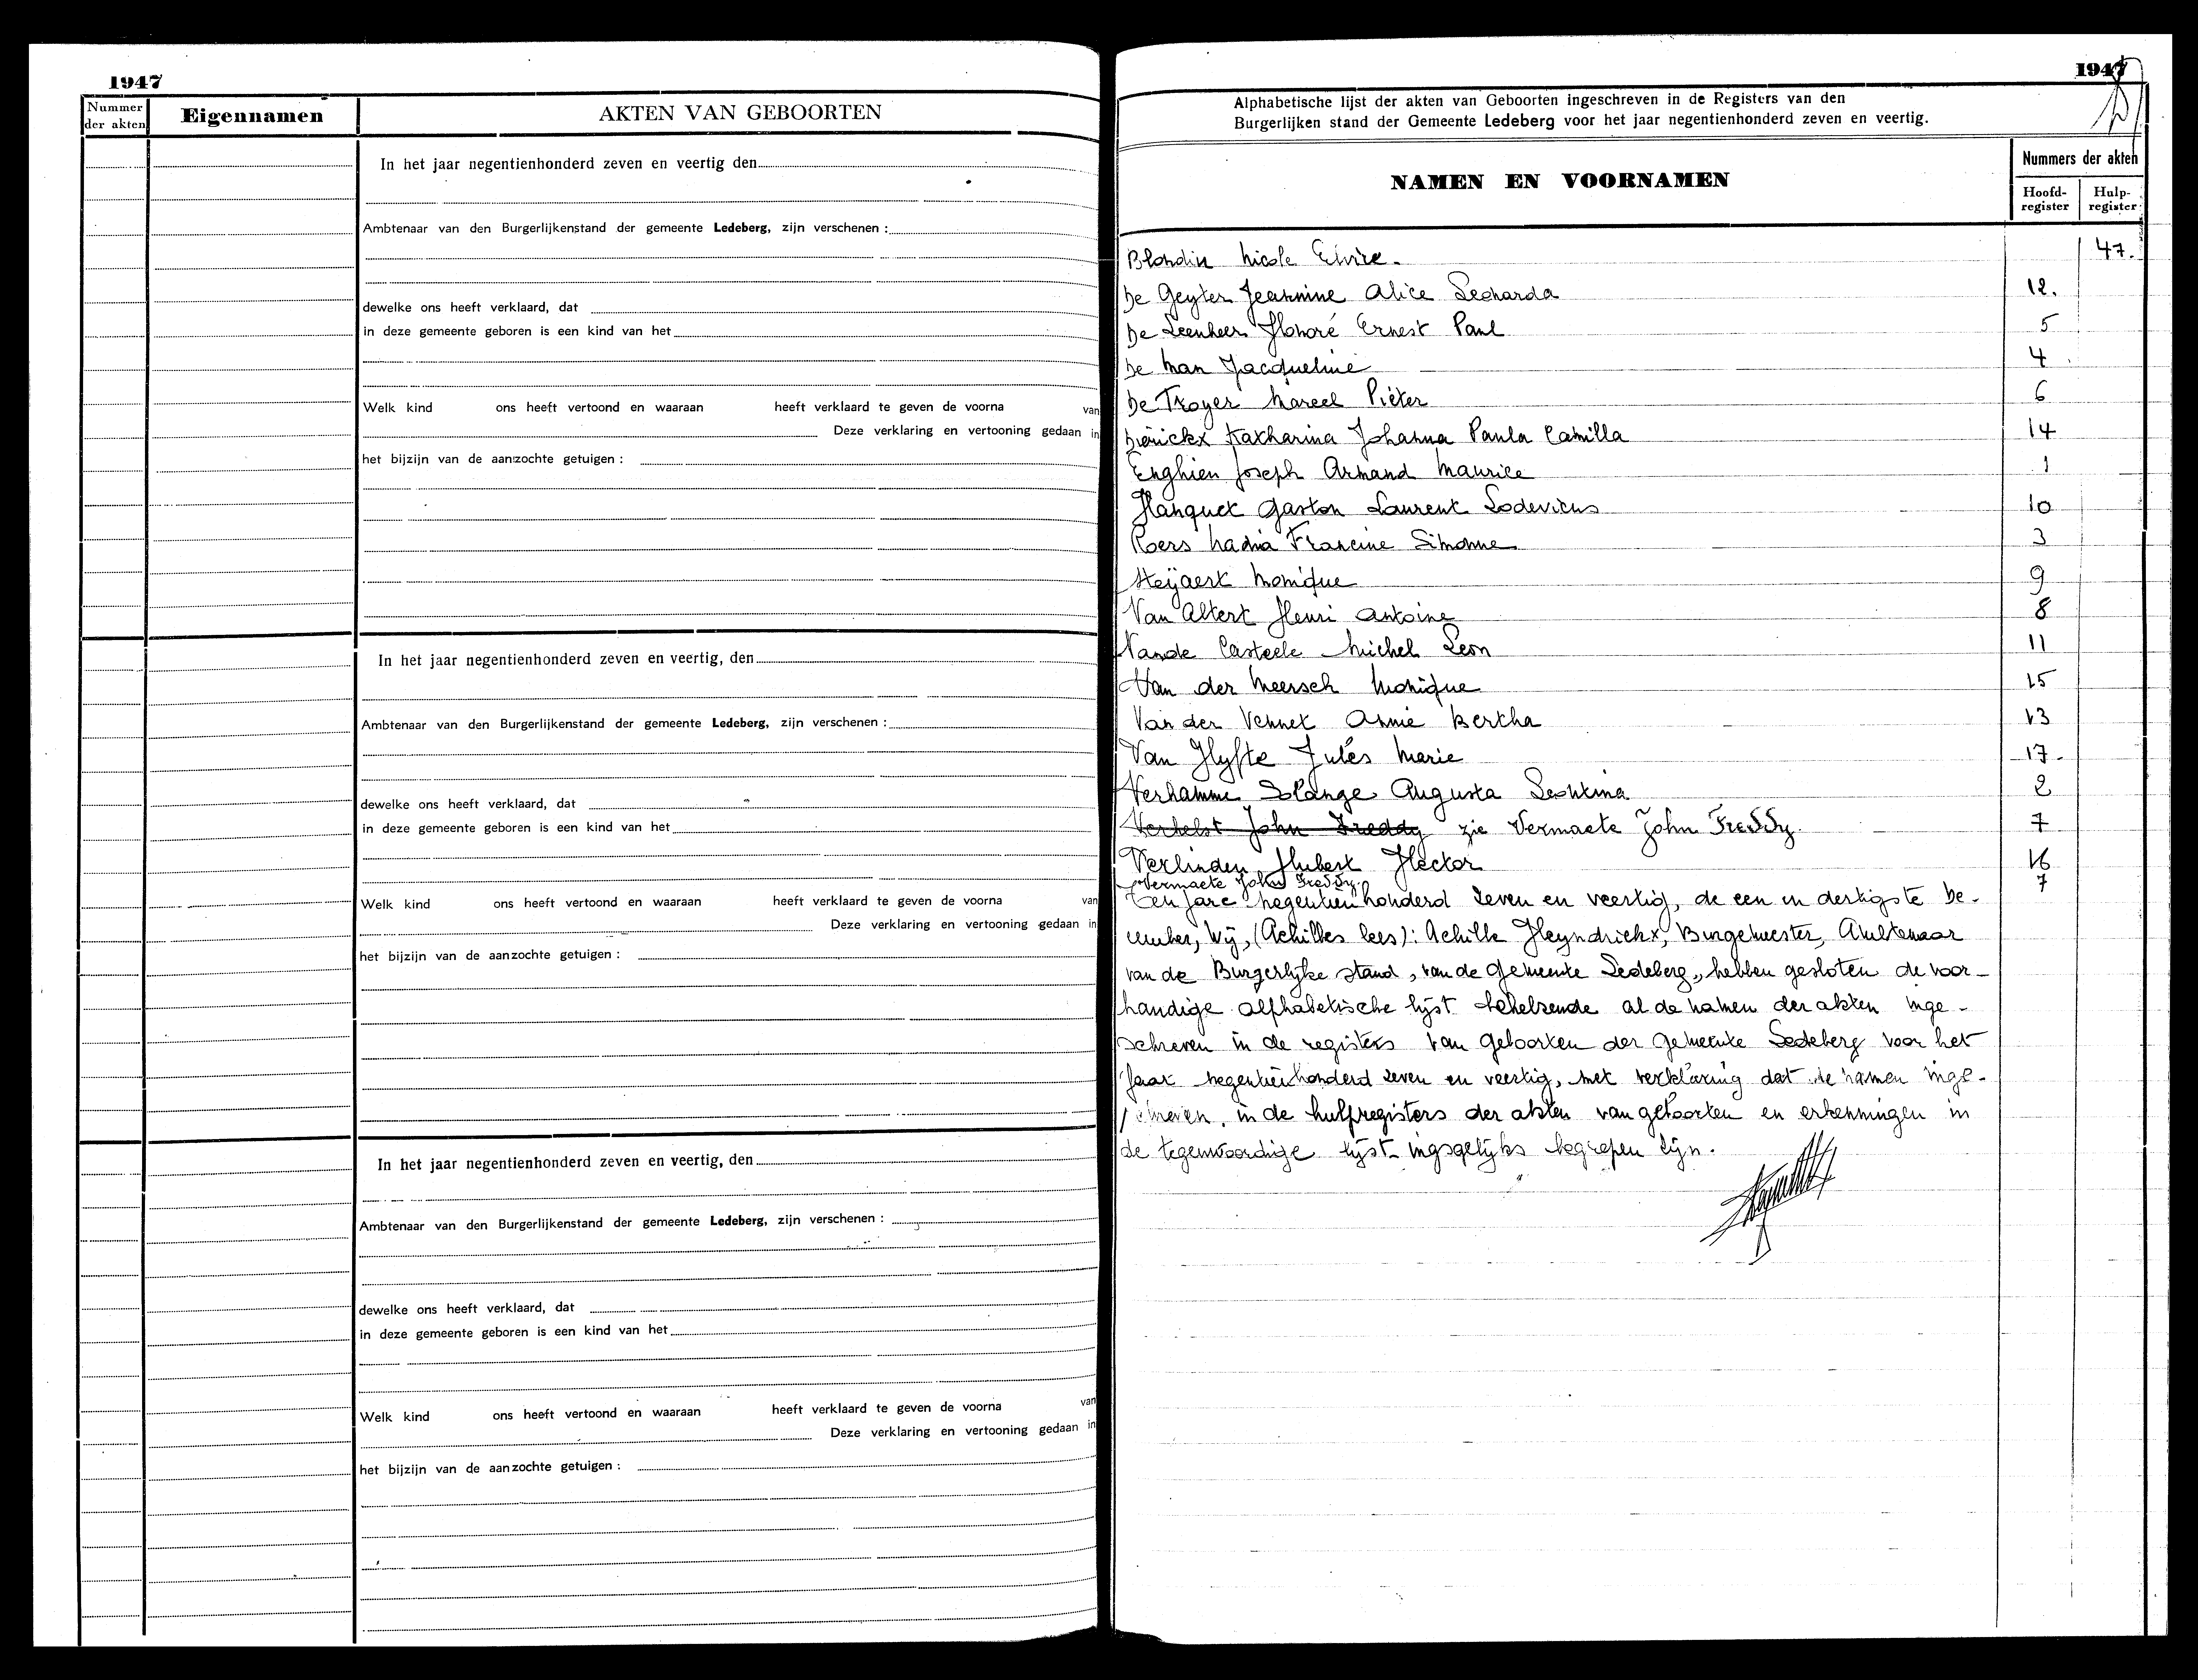 1947
Nummer der akten
Eigennamen
AKTEN VAN GEBOORTEN
In het jaar negentienhonderd zeven en veertig den
Ambtenaar van den Burgerlijkenstand der gemeente Ledeberg, zijn verschenen :
dewelke ons heeft verklaard, dat
in deze gemeente geboren is een kind van het
Welk kind ons heeft vertoond en waaraan heeft verklaard te geven de voorna van
Deze verklaring en vertooning gedaan in
het bijzijn van de aanzochte getuigen :
In het jaar negentienhonderd zeven en veertig, den
Ambtenaar van den Burgerlijkenstand der gemeente Ledeberg, zijn verschenen :
dewelke ons heeft verklaard, dat
in deze gemeente geboren is een kind van het
Welk kind ons heeft vertoond en waaraan heeft verklaard te geven de voorna van
Deze verklaring en vertooning gedaan in
het bijzijn van de aanzochte getuigen :
In het jaar negentienhonderd zeven en veertig, den
Ambtenaar van den Burgerlijkenstand der gemeente Ledeberg, zijn verschenen :
dewelke ons heeft verklaard, dat
in deze gemeente geboren is een kind van het
Welk kind ons heeft vertoond en waaraan heeft verklaard te geven de voorna van
Deze verklaring en vertooning gedaan in
het bijzijn van de aanzochte getuigen :
1947
Alphabetische lijst der akten van Geboorten ingeschreven in de Registers van den
Burgerlijken stand der Gemeente Ledeberg voor het jaar negentienhonderd zeven en veertig.
NAMEN EN VOORNAMEN
Nummers der akten
Hoofd-register
Hulp-register
Blondin Nicole Elvire. 47.
De Geyter Jeannine Alice Leonarda 12.
De Leenheer Honoré Ernest Paul 5
De Man Jacqueline 4
De Troyer Marcel Pieter 6
Dierickx Katharina Johanna Paula Camilla 14
Enghien Joseph Armand Maurice 1
Hanquet Gaston Laurent Lodevicus 10
Roers Nadia Francine Simonne 3
Steyaert Monique 9
Van Altert Henri Antoine 8
Vande Casteele Michel Leon 11
Van der Meersch Monique 15
Van der Vennet Annie Bertha 13
Van Hyfte Jules Marie 17.
Verhamme Solange Augusta Leontina 2
Verhelst John Freddy zie Vermaete John Freddy. 7
Verlinden Hubert Hector 16
Vermaete John Freddy. 7
Ten jare negentienhonderd zeven en veertig, de een en dertigste De-
cember, Wij, (Achilles lees): Achille Heyndrickx, Burgemeester, Ambtenaar
van de Burgerlyke stand, van de Gemeente Ledeberg, hebben gesloten de voor-
handige alfhabetische lyst behelzende al de namen der akten inge-
schreven in de registers van geboorten der Gemeente Ledeberg voor het
jaar negentienhonderd zeven en veertig, met verklaring dat de namen inge-
schreven, in de hulpregisters der akten van geboorten en erkenningen in
de tegenwoordige lyst insgelyks begrepen zyn.